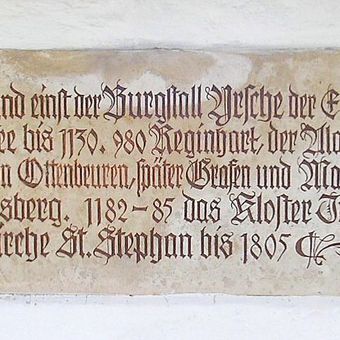 nd einst der Burgstall Yrsche der E
ee bis 1130. 980 Reginhart, der Ala
n Ottenbeuren, später Grafen und Ma
sberg. 1182-85 das Kloster
irche St. Stephan bis 1805